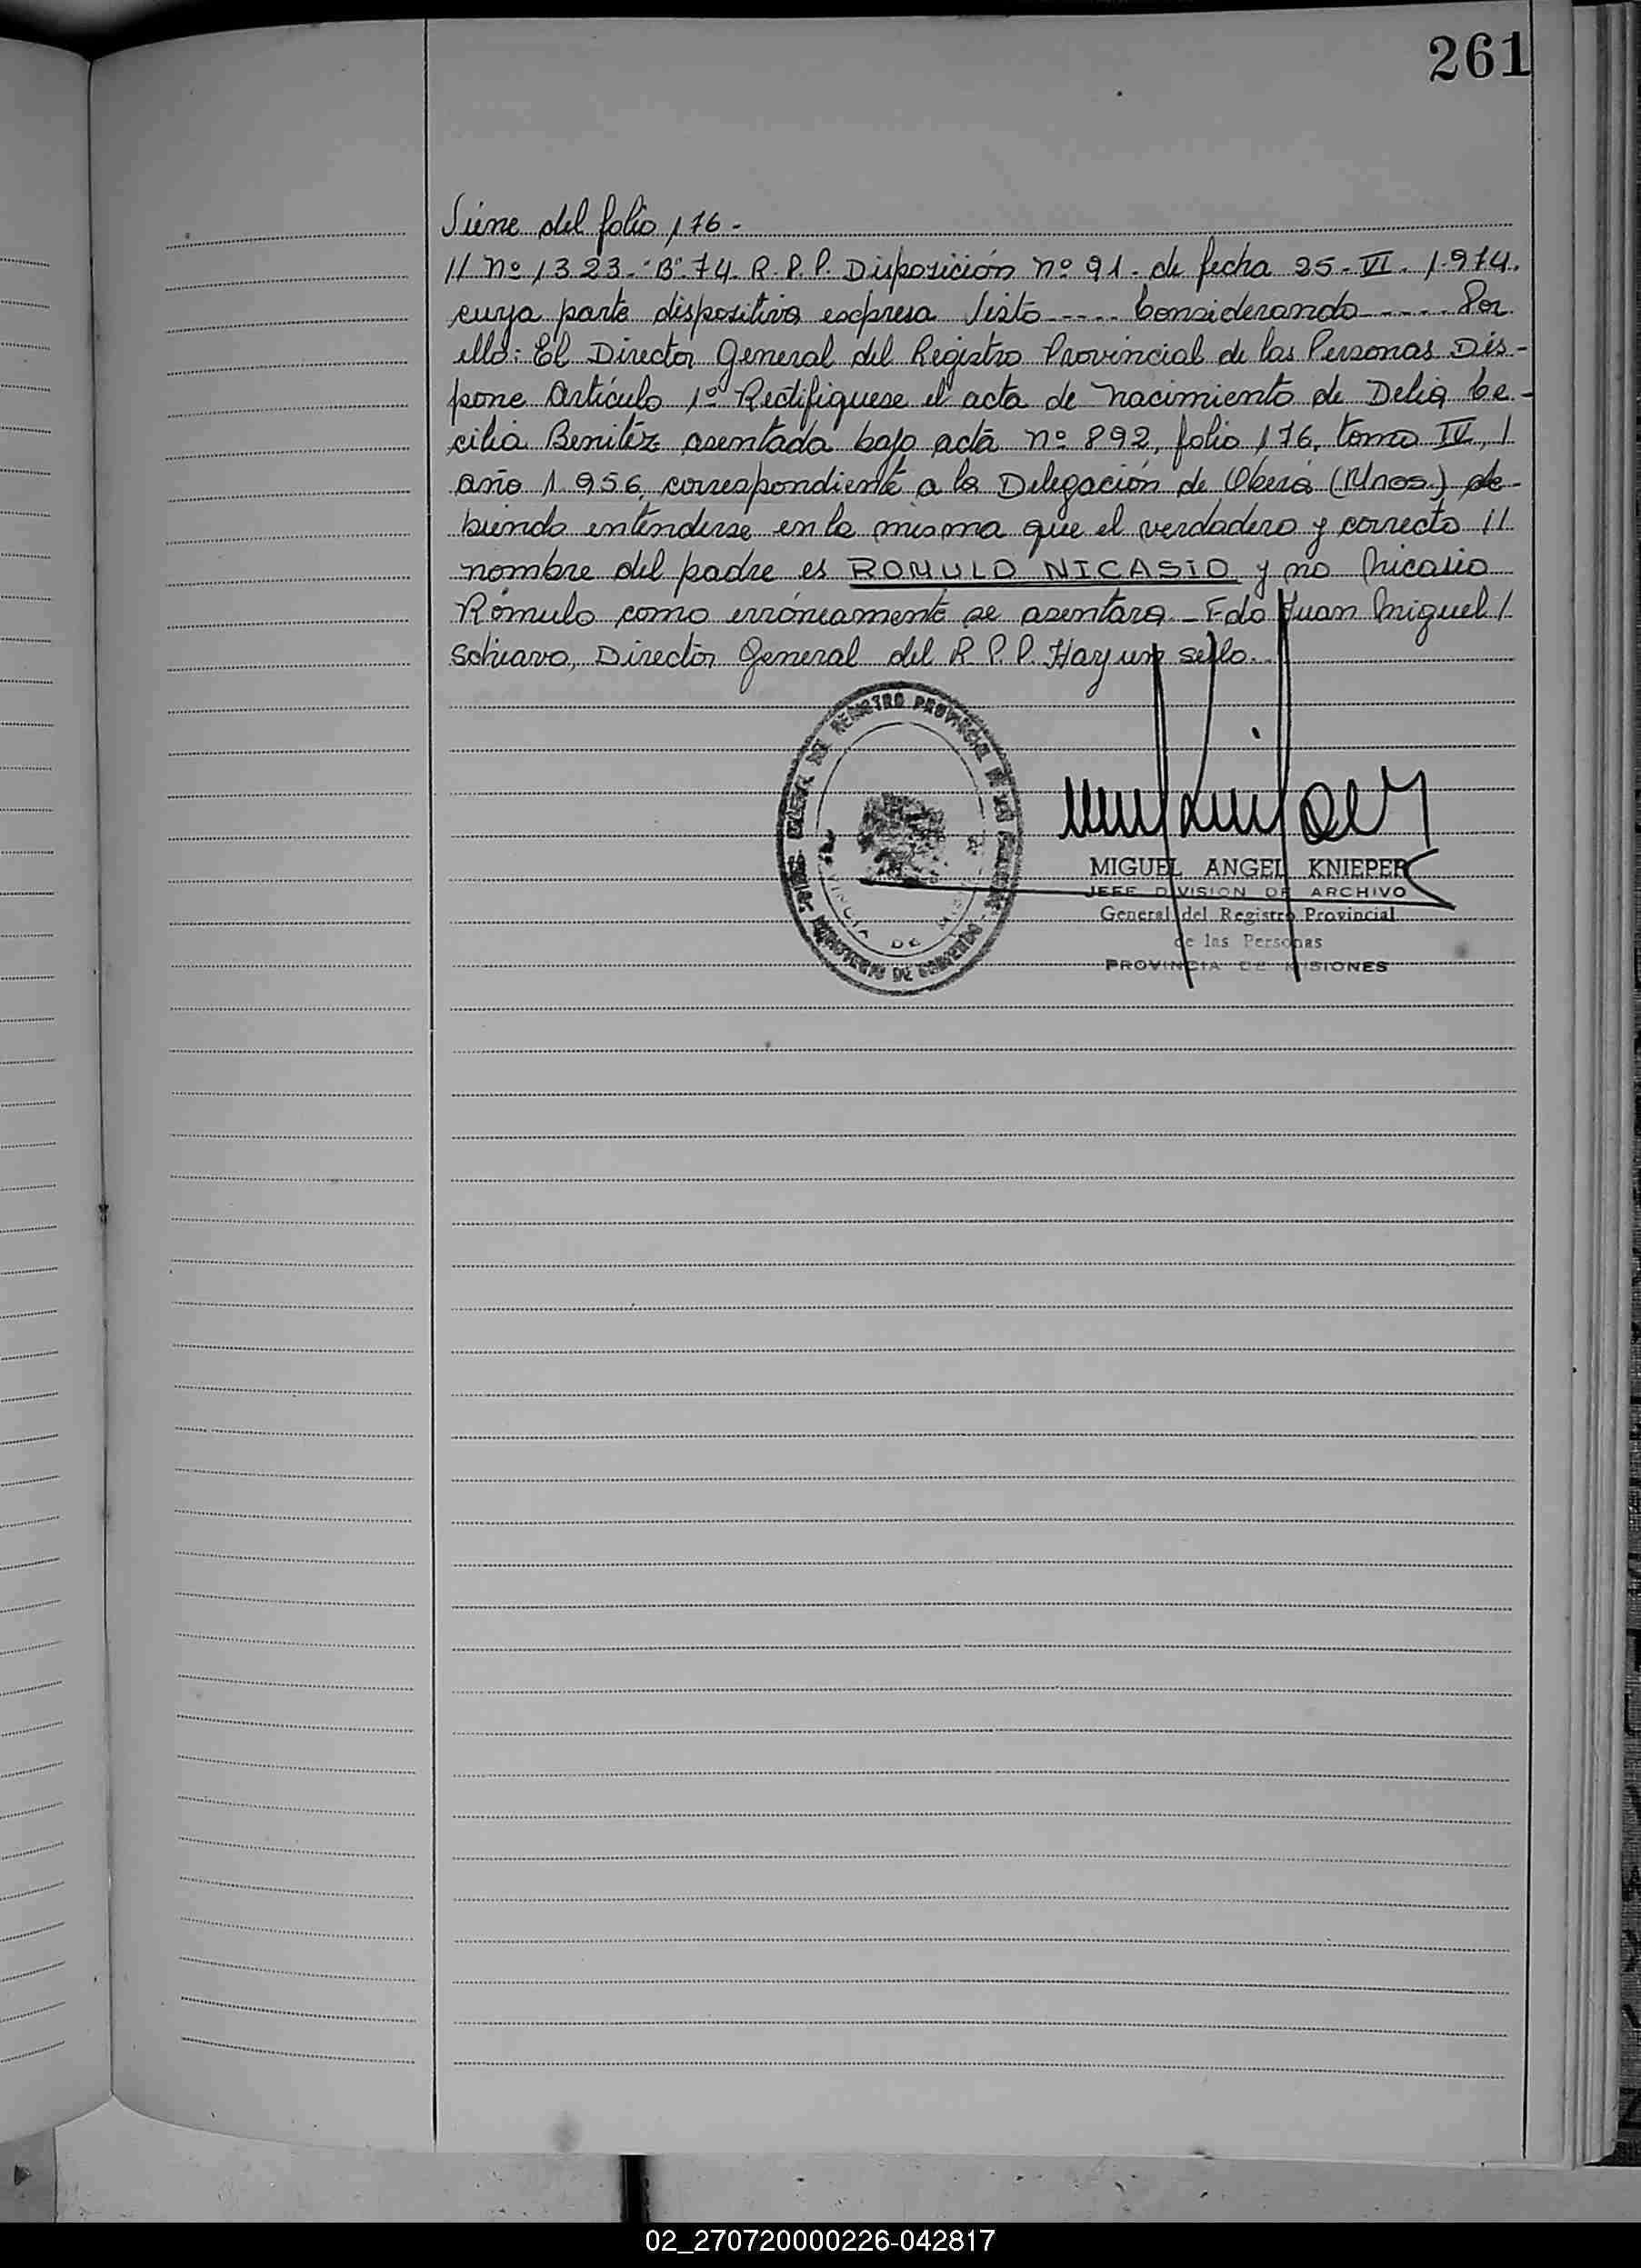 261
Viene del folio 176.-
// Nº 1323-"B"-74-R.P.P. Disposición Nº 91- de fecha 25-VI-1.974.
cuya parte dispositiva expresa Visto ----- Considerando ----- Por
ello: El Director General del Registro Provincial de las Personas Dis-
pone Artículo 1º Rectifiquese el acta de nacimiento de Delia Ce-
cilia Benitez asentada bajo acta Nº 892, folio 176, tomo IV, /
año 1.956, correspondiente a la Delegación de Oberá (Mnes.) de-
biendo entenderse en la misma que el verdadero y correcto //
nombre del padre es ROMULO NICASIO y no Nicasio
Rómulo como erróneamente se asentara.- Fdo Juan Miguel /
Schiavo, Director General del R.P.P. Hay un sello.
REGISTRO PROVINCIAL DE LAS
MINISTERIO DE GOBIERNO
MIGUEL ANGEL KNIEPER
JEFE DIVISION DE ARCHIVO
General del Registro Provincial
de las Personas
PROVINCIA DE MISIONES
02_270720000226-042817